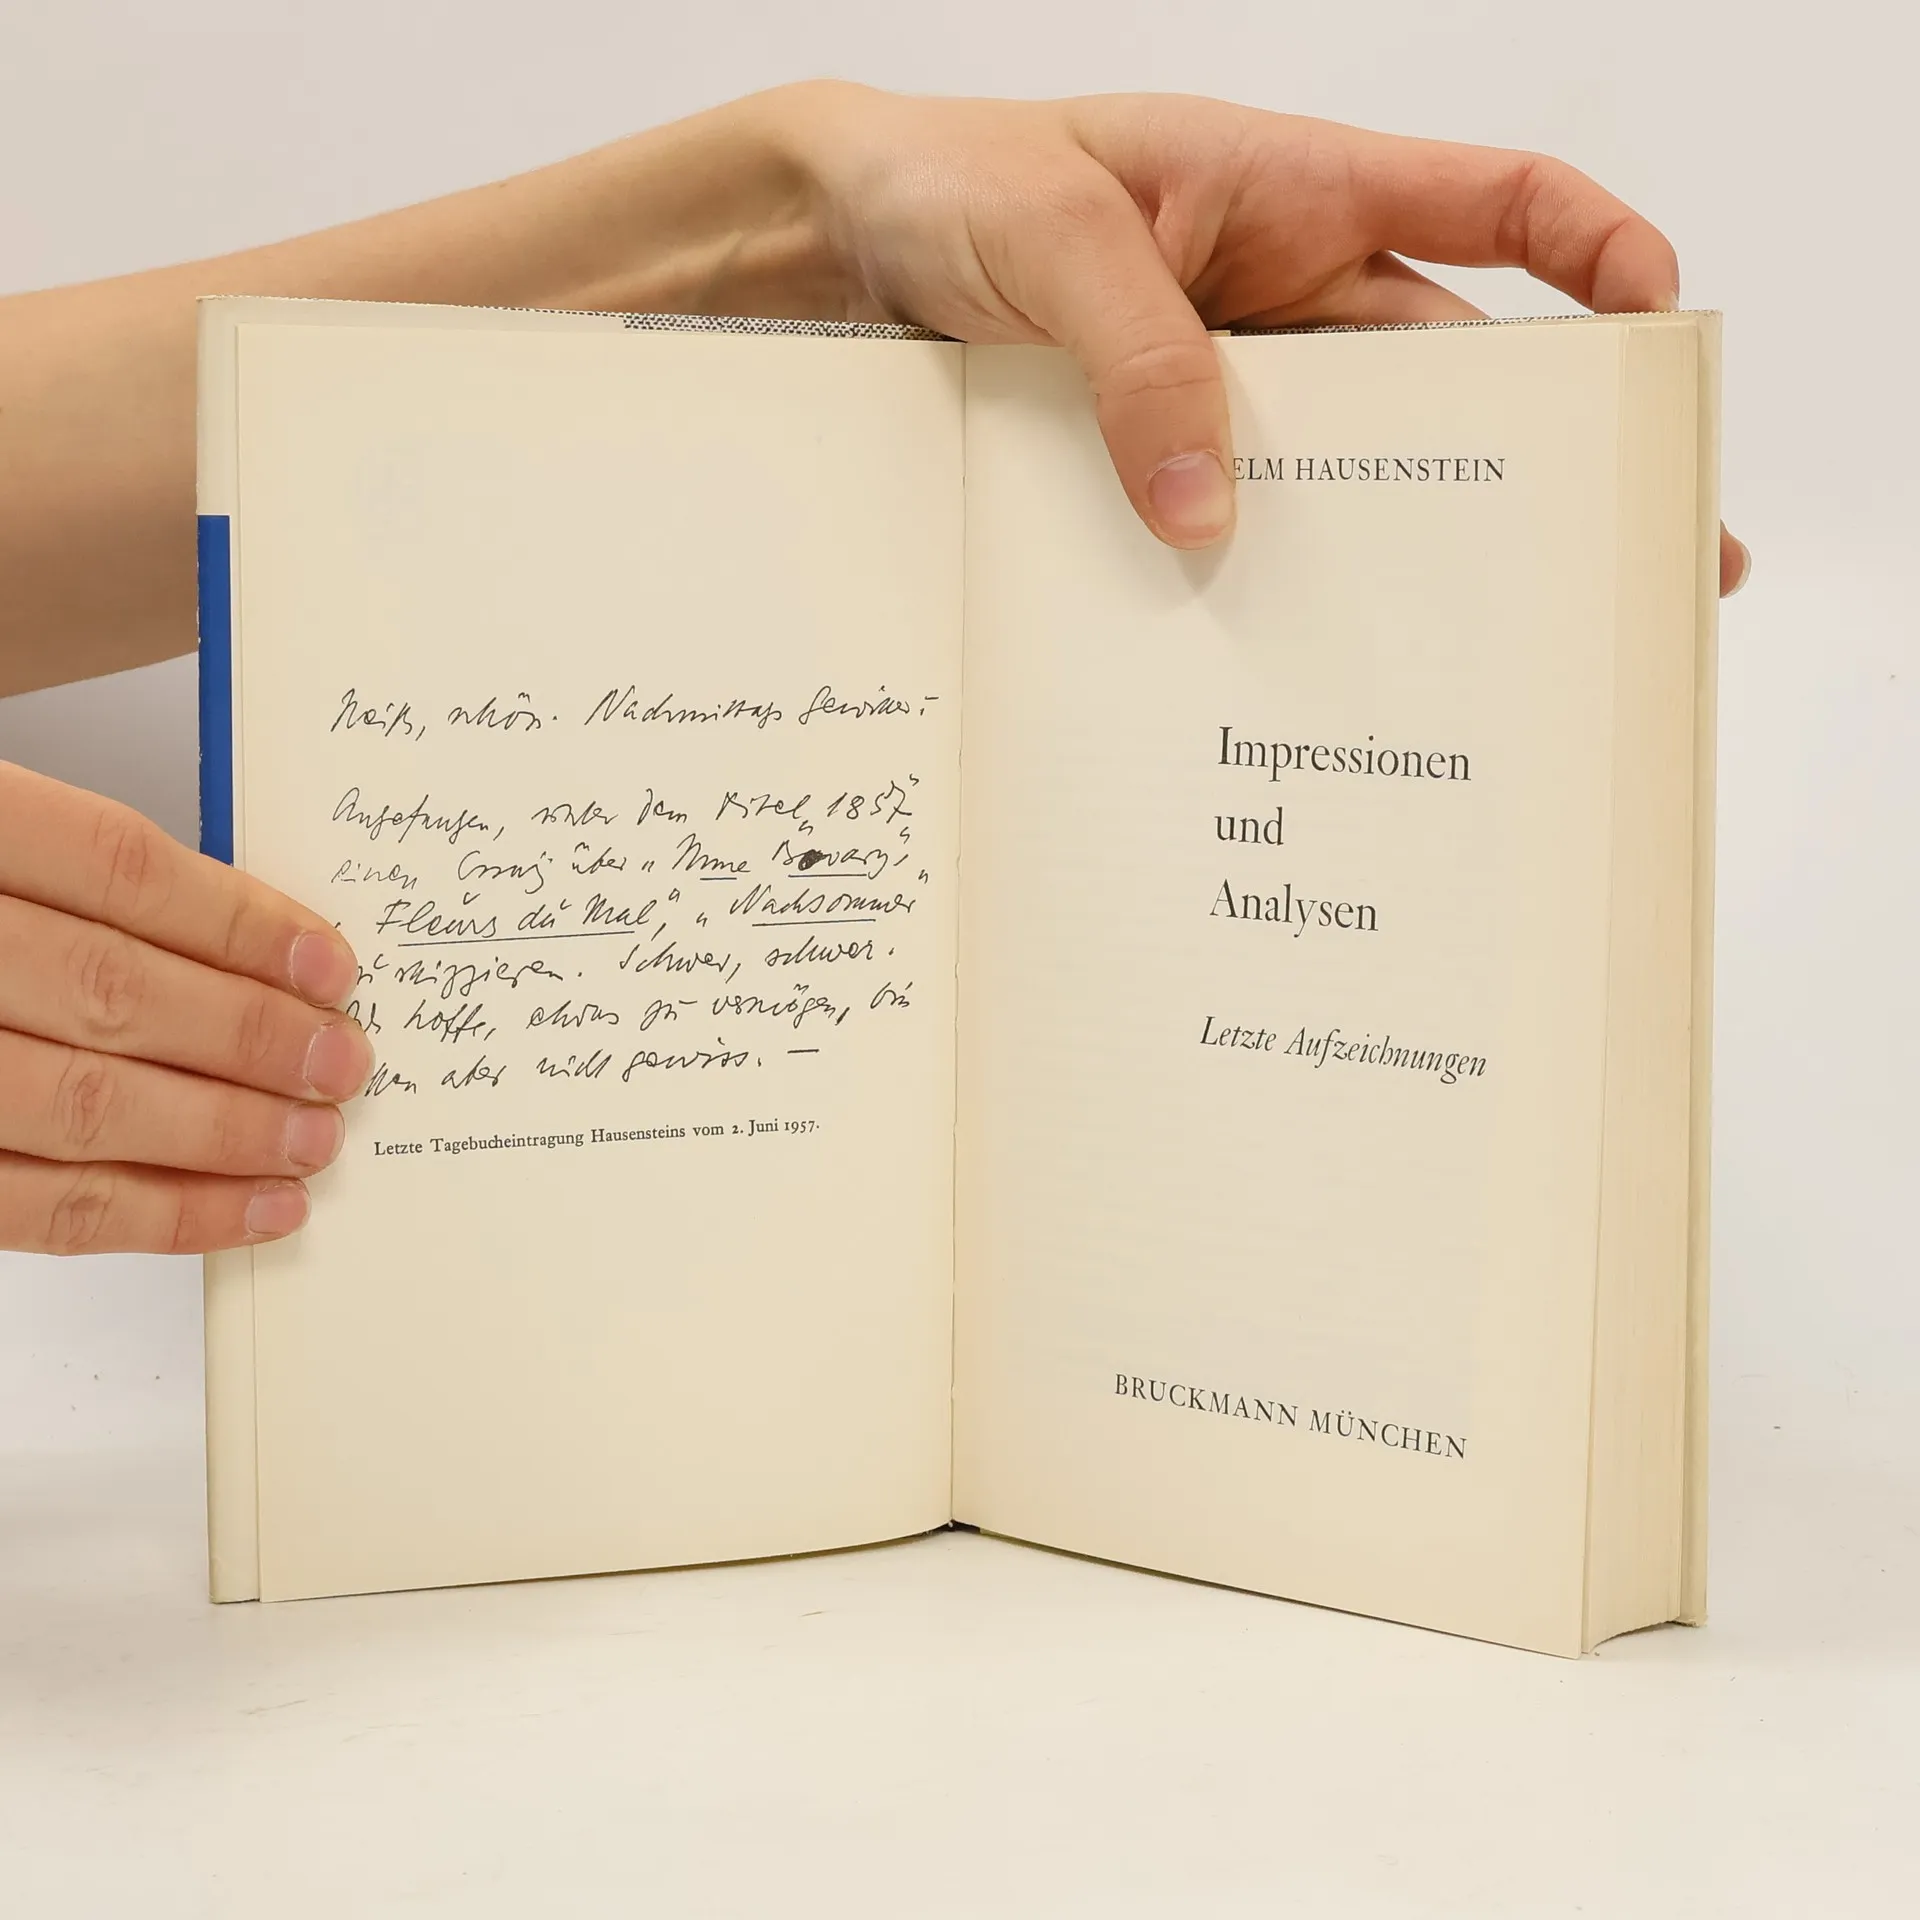 Heiß, schön. Nachmittags Gewitter.
Angefangen, unter dem Titel „1857“
einen Essay über „Mme Bovary“,
„Fleurs du Mal“, „Nachsommer“
zu skizzieren. Schwer, schwer.
hoffe, etwas zu vermögen, bin
aber nicht gewiss. —
Letzte Tagebucheintragung Hausensteins vom 2. Juni 1957.
ELM HAUSENSTEIN
Impressionen
und
Analysen
Letzte Aufzeichnungen
BRUCKMANN MÜNCHEN